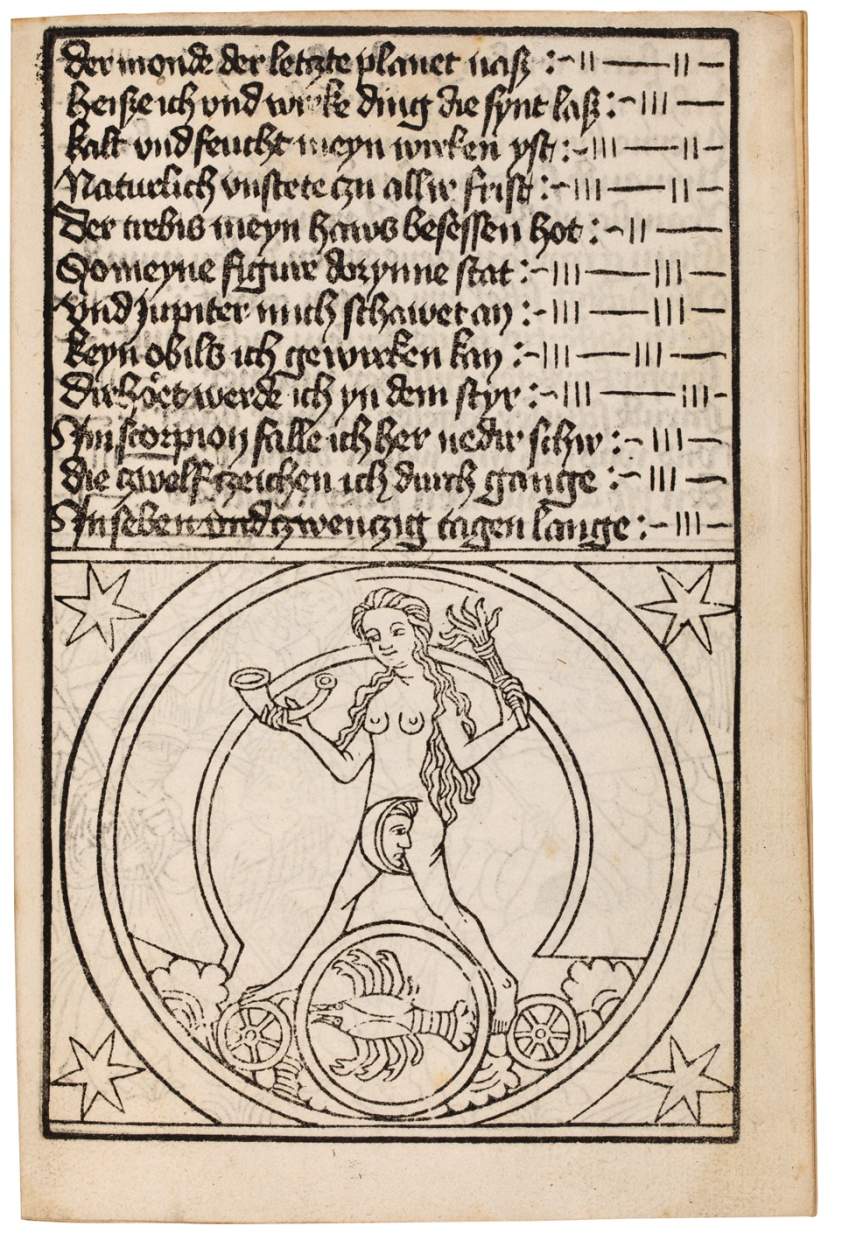 der monde der letzte planet nasz
heisze ich vnd wirke ding die synt lasz
kalt vnd feucht meyn wirken yst
Naturlich vnstete czu aller frist
Der crebis meyn haws besessen hot
So meyne figure dorynne stat
vnd Jupiter mich schawet an
keyn obils ich gewirken kan
Dirhoet werde ich yn dem styr
Im scorpion falle ich her nedir schir
die zwelf czeichen ich durch gange
In seben vnd czwenczig tagen lange